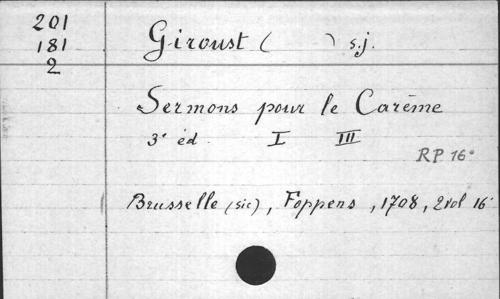 201
181
2
Giroust ( ) s.j.
Sermons pour le Carême
3e éd. I III
RP 16°
Brusselle (sic), Foppens, 1708, 2 vol 16°